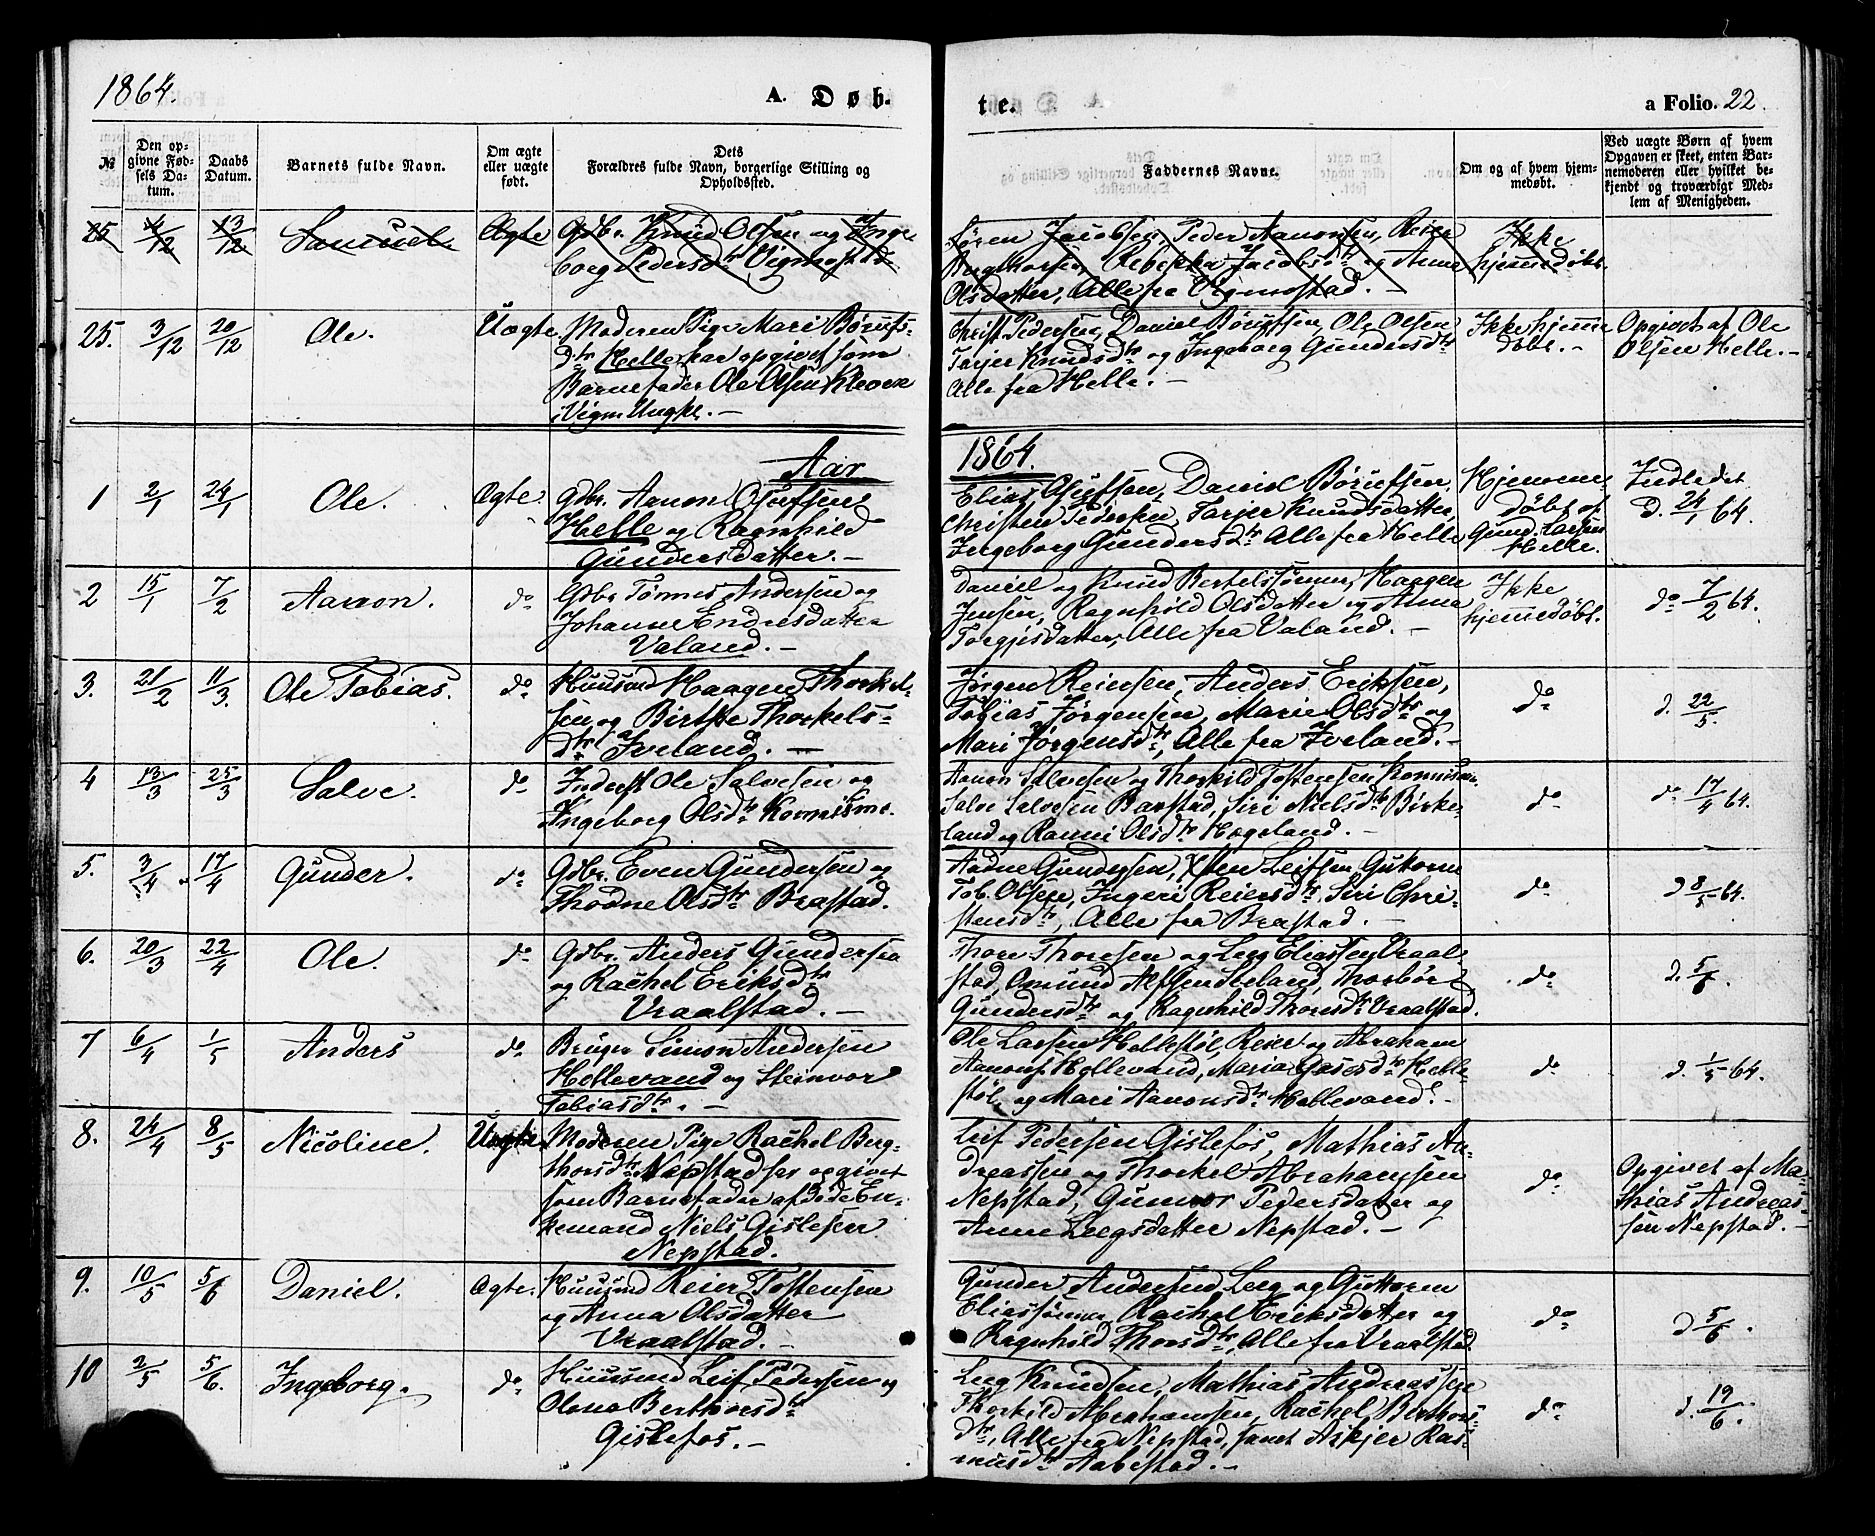 1864.
A. Døb-
te.
a Folio. 22.
№
Den op-
givne Fød-
sels Da-
tum.
Daabs
Datum.
Barnets fulde Navn.
Om ægte
eller uægte
født.
Dets
Forældres fulde Navn, borgerlige Stilling og
Opholdssted.
Faddernes Navne.
Om og af hvem hjem-
medøbt.
Ved uægte Børn af hvem
Opgaven er skeet, enten Bar-
nemoderen eller hvilket be-
kjendt og troværdigt Med-
lem af Menigheden.
25 4/12 13/12 Samuel Ægte Gdbr. Knud Olsen og Inge
borg Pedersdtr Vigmostad
Søren Jacobsen, Peder Aanonsen, Reier
Rebekka Jacobsdtr og Anna
Olsdatter, Alle fra Vigmostad. -
Ikke
hjemmedøbt.
25. 3/12 20/12 Ole. Uægte Moderen Pige Mari Børufs-
dtr Helle har opgivet som
Barnefader Ole Olsen Kleven
i Vigm Ungkl. -
Christ. Pedersen, Daniel Børufsen, Ole Olsen
Tarjer Knudsdtr og Ingeborg Gundersdtr
Alle fra Helle. -
Ikke hjemme
døbt. -
Opgivet af Ole
Olsen Helle. -
Aar
1864.
1 2/1 24/1 Ole. Ægte. Gdbr. Aanon Osufsen
Helle og Ragnhild
Gundersdatter. -
Elias Osufsen, Daniel Børufsen,
Christen Pedersen, Tarjer Knudsdatter,
Ingeborg Gundersdtr Alle fra Helle
Hjemme-
døbt af
Gund. Larsen
Helle.
Indledet
d. 24/1 64.
2 15/1 7/2 Aanon. do Gdbr Tønnes Andersen og
Johanne Endresdatter
Valand. -
Daniel og Knud Bertelssønner, Haagen
Jensen, Ragnhild Olsdatter og Anna
Torgjisdatter, Alle fra Valand. -
Ikke
hjemmedøbt.
do 7/2 64.
3. 21/2 11/3. Ole Tobias. do Huusmd Haagen Thorkel-
sen og Birthe Thorkels-
dtr Iveland. -
Jørgen Reiersen, Anders Eriksen,
Tobias Jørgensen, Marie Olsdtr og
Mari Jørgensdtr, Alle fra Iveland. -
do
d. 22/5.
4 13/3 25/3 Salve. do Inderst Ole Salvesen og
Ingeborg Olsdtr Kornismo.
Aanon Salvesen og Thorkild Tostensen Kornismo
Salve Salvesen Barstad, Siri Nielsdtr Birke-
land og Ranni Olsdtr Hægeland. -
do
do 17/4 64.
5. 3/4 17/4 Gunder. do Gdbr. Even Gundersen og
Thodne Olsdtr Brastad.
Aadne Gundersen, Leifsen, Gutorm
Tob. Olsen, Ingeri Reiersdtr, Siri Chri-
stensdtr, Alle fra Brastad. -
do
d 8/5 64.
6. 20/3 22/4 Ole. do Gdbr. Anders Gundersen
og Rachel Eriksdtr
Vraalstad. -
Thore Thoresen og Leeg Eliassen Vraal-
stad, Omund Alfsen Steland, Thorbør
Gundersdtr og Ragnhild Thorsdtr Vraalstad.
do
d. 5/6.
7 6/4 1/5 Anders do Bruger Simon Andersen
Hollevand og Steinvor
Tobiasdtr. -
Ole Larsen Hellestøl, Reier og Abraham
Aanons. Hollevand, Maria Gasesdtr Helle-
støl, og Mari Aanonsdtr Hollevand. -
do
d. 1/5 64.
8. 24/4 8/5 Nicoline. Uægte Moderen Pige Rachel Berg-
thorsdtr Nepstad har opgivet
som Barnefader afdøde En-
kemand Niels Gislesen
Nepstad.
Leif Pedersen Gislefos, Mathias An-
dreassen og Thorkel Abrahamsen
Nepstad, Gunvor Pedersdatter og
Anne Leegsdatter Nepstad. -
do
Opgivet af Ma-
thias Andreas-
sen Nepstad. -
9. 10/5 5/6 Daniel. Ægte. Huusmd Reier Tostensen
og Anna Olsdatter
Vraalstad. -
Gunder Andersen, Leeg og Guttorm
Eliassønner, Rachel Eriksdatter og
Ragnhild Thorsdtr, Alle fra Vraalstad.
do
d 5/6.
10 2/5 5/6. Ingeborg. do Huusmd Leif Pedersen og
Olena Berthorsdtr
Gislefos. -
Leeg Knudsen, Mathias Andreassen
Thorkild Abrahamsen, Rachel Berthors-
dtr, Alle fra Nepstad, samt Askjer Ras-
musdtr Aabestad. -
do
d. 19/6.